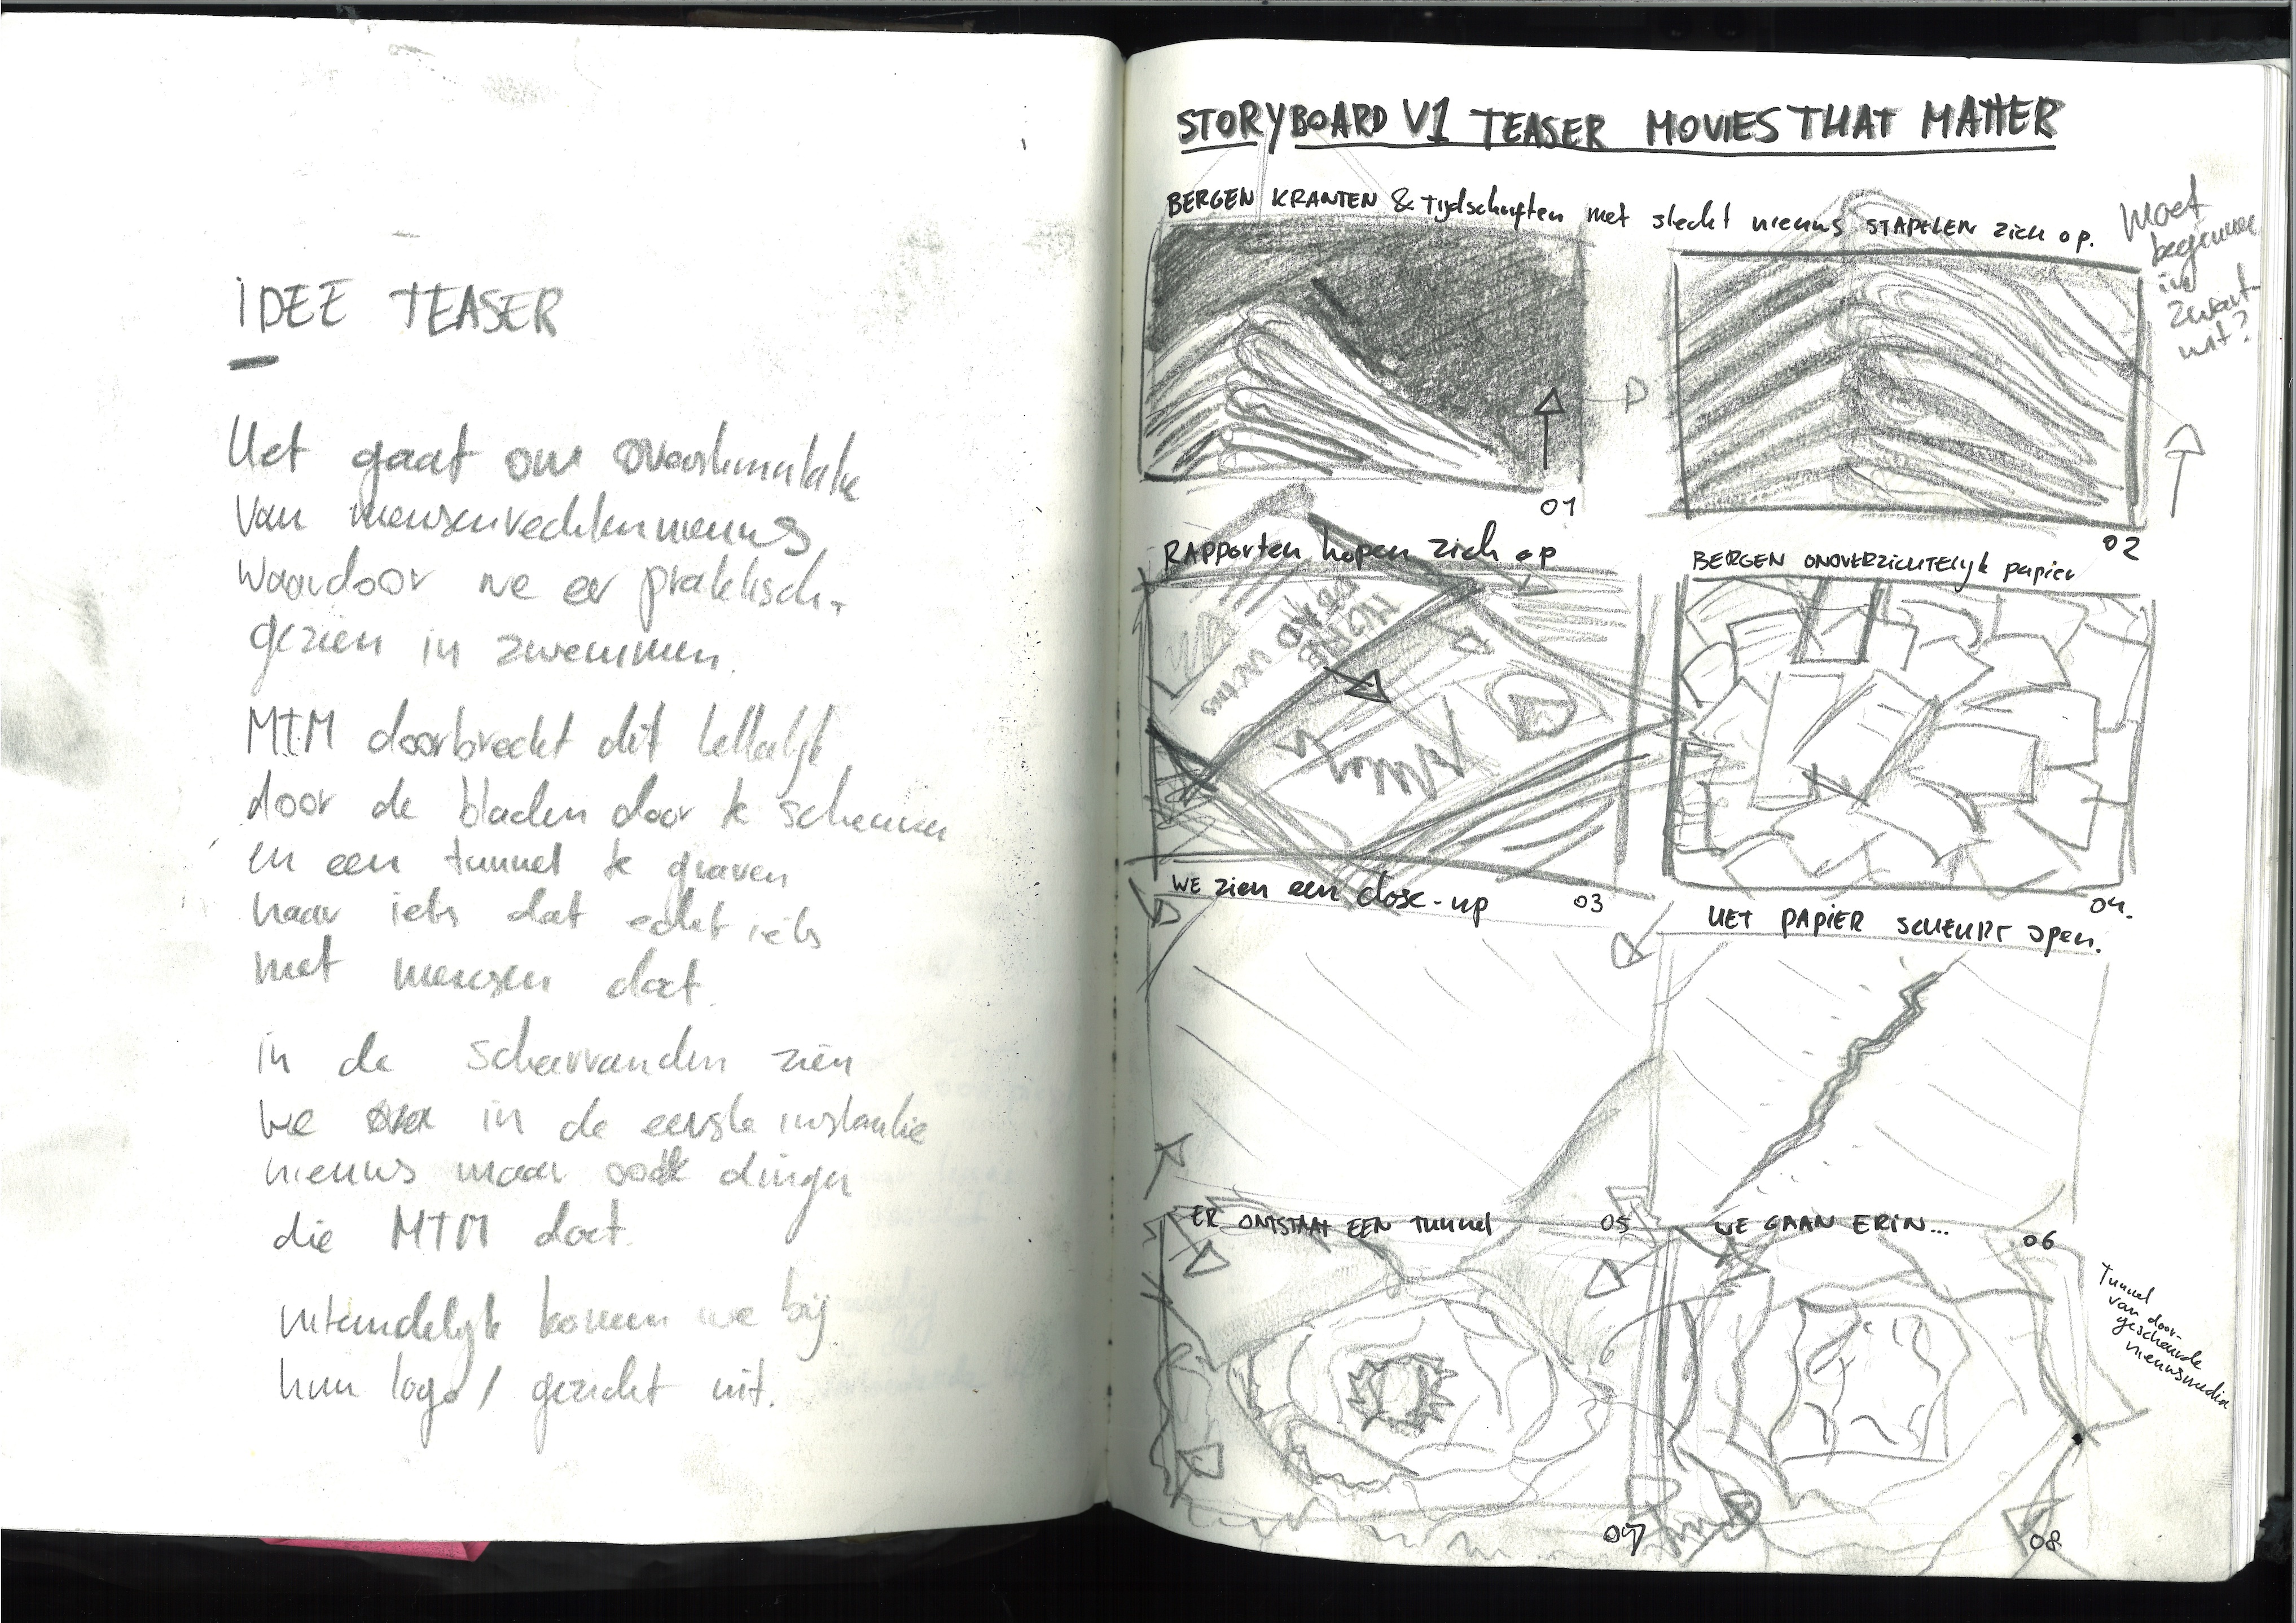 IDEE TEASER
Het gaat om overstimulatie
van mensenrechtennieuws
waardoor we er praktisch
gezien in zwemmen.
MTM doorbreekt dit letterlijk
door de bladen door te scheuren
en een tunnel te graven
naar iets dat echt iets
met mensen doet.
in de scheurranden zien
we in de eerste instantie
nieuws maar ook dingen
die MTM doet.
uiteindelijk komen we bij
hun logo / gezicht uit.
STORYBOARD V1 TEASER MOVIES THAT MATTER
BERGEN KRANTEN & tijdschriften met slecht nieuws STAPELEN zich op.
Moet
beginnen
in
zwart-
wit?
01
02
RAPPORTEN hopen zich op
BERGEN ONOVERZICHTELIJK papier
03
04.
WE zien een close-up
HET PAPIER SCHEURT open.
05
06
ER ONTSTAAT EEN TUNNEL
WE GAAN ERIN...
Tunnel
van door-
gescheurde
nieuwsmedia
07
08